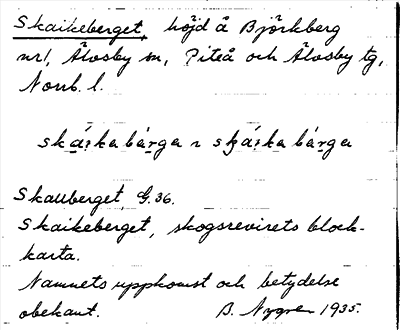 Skaikeberget, höjd å Björkberg
nr1, Älvsby sn, Piteå och Älvsby tg,
Norrb. l.
skái̯ka bárga ~ sk̯ái̯ka bárga
Skaulberget, G.36.
Skaikeberget, skogsrevirets block-
karta.
Namnets uppkomst och betydelse
obekant. B. Nygren 1935.